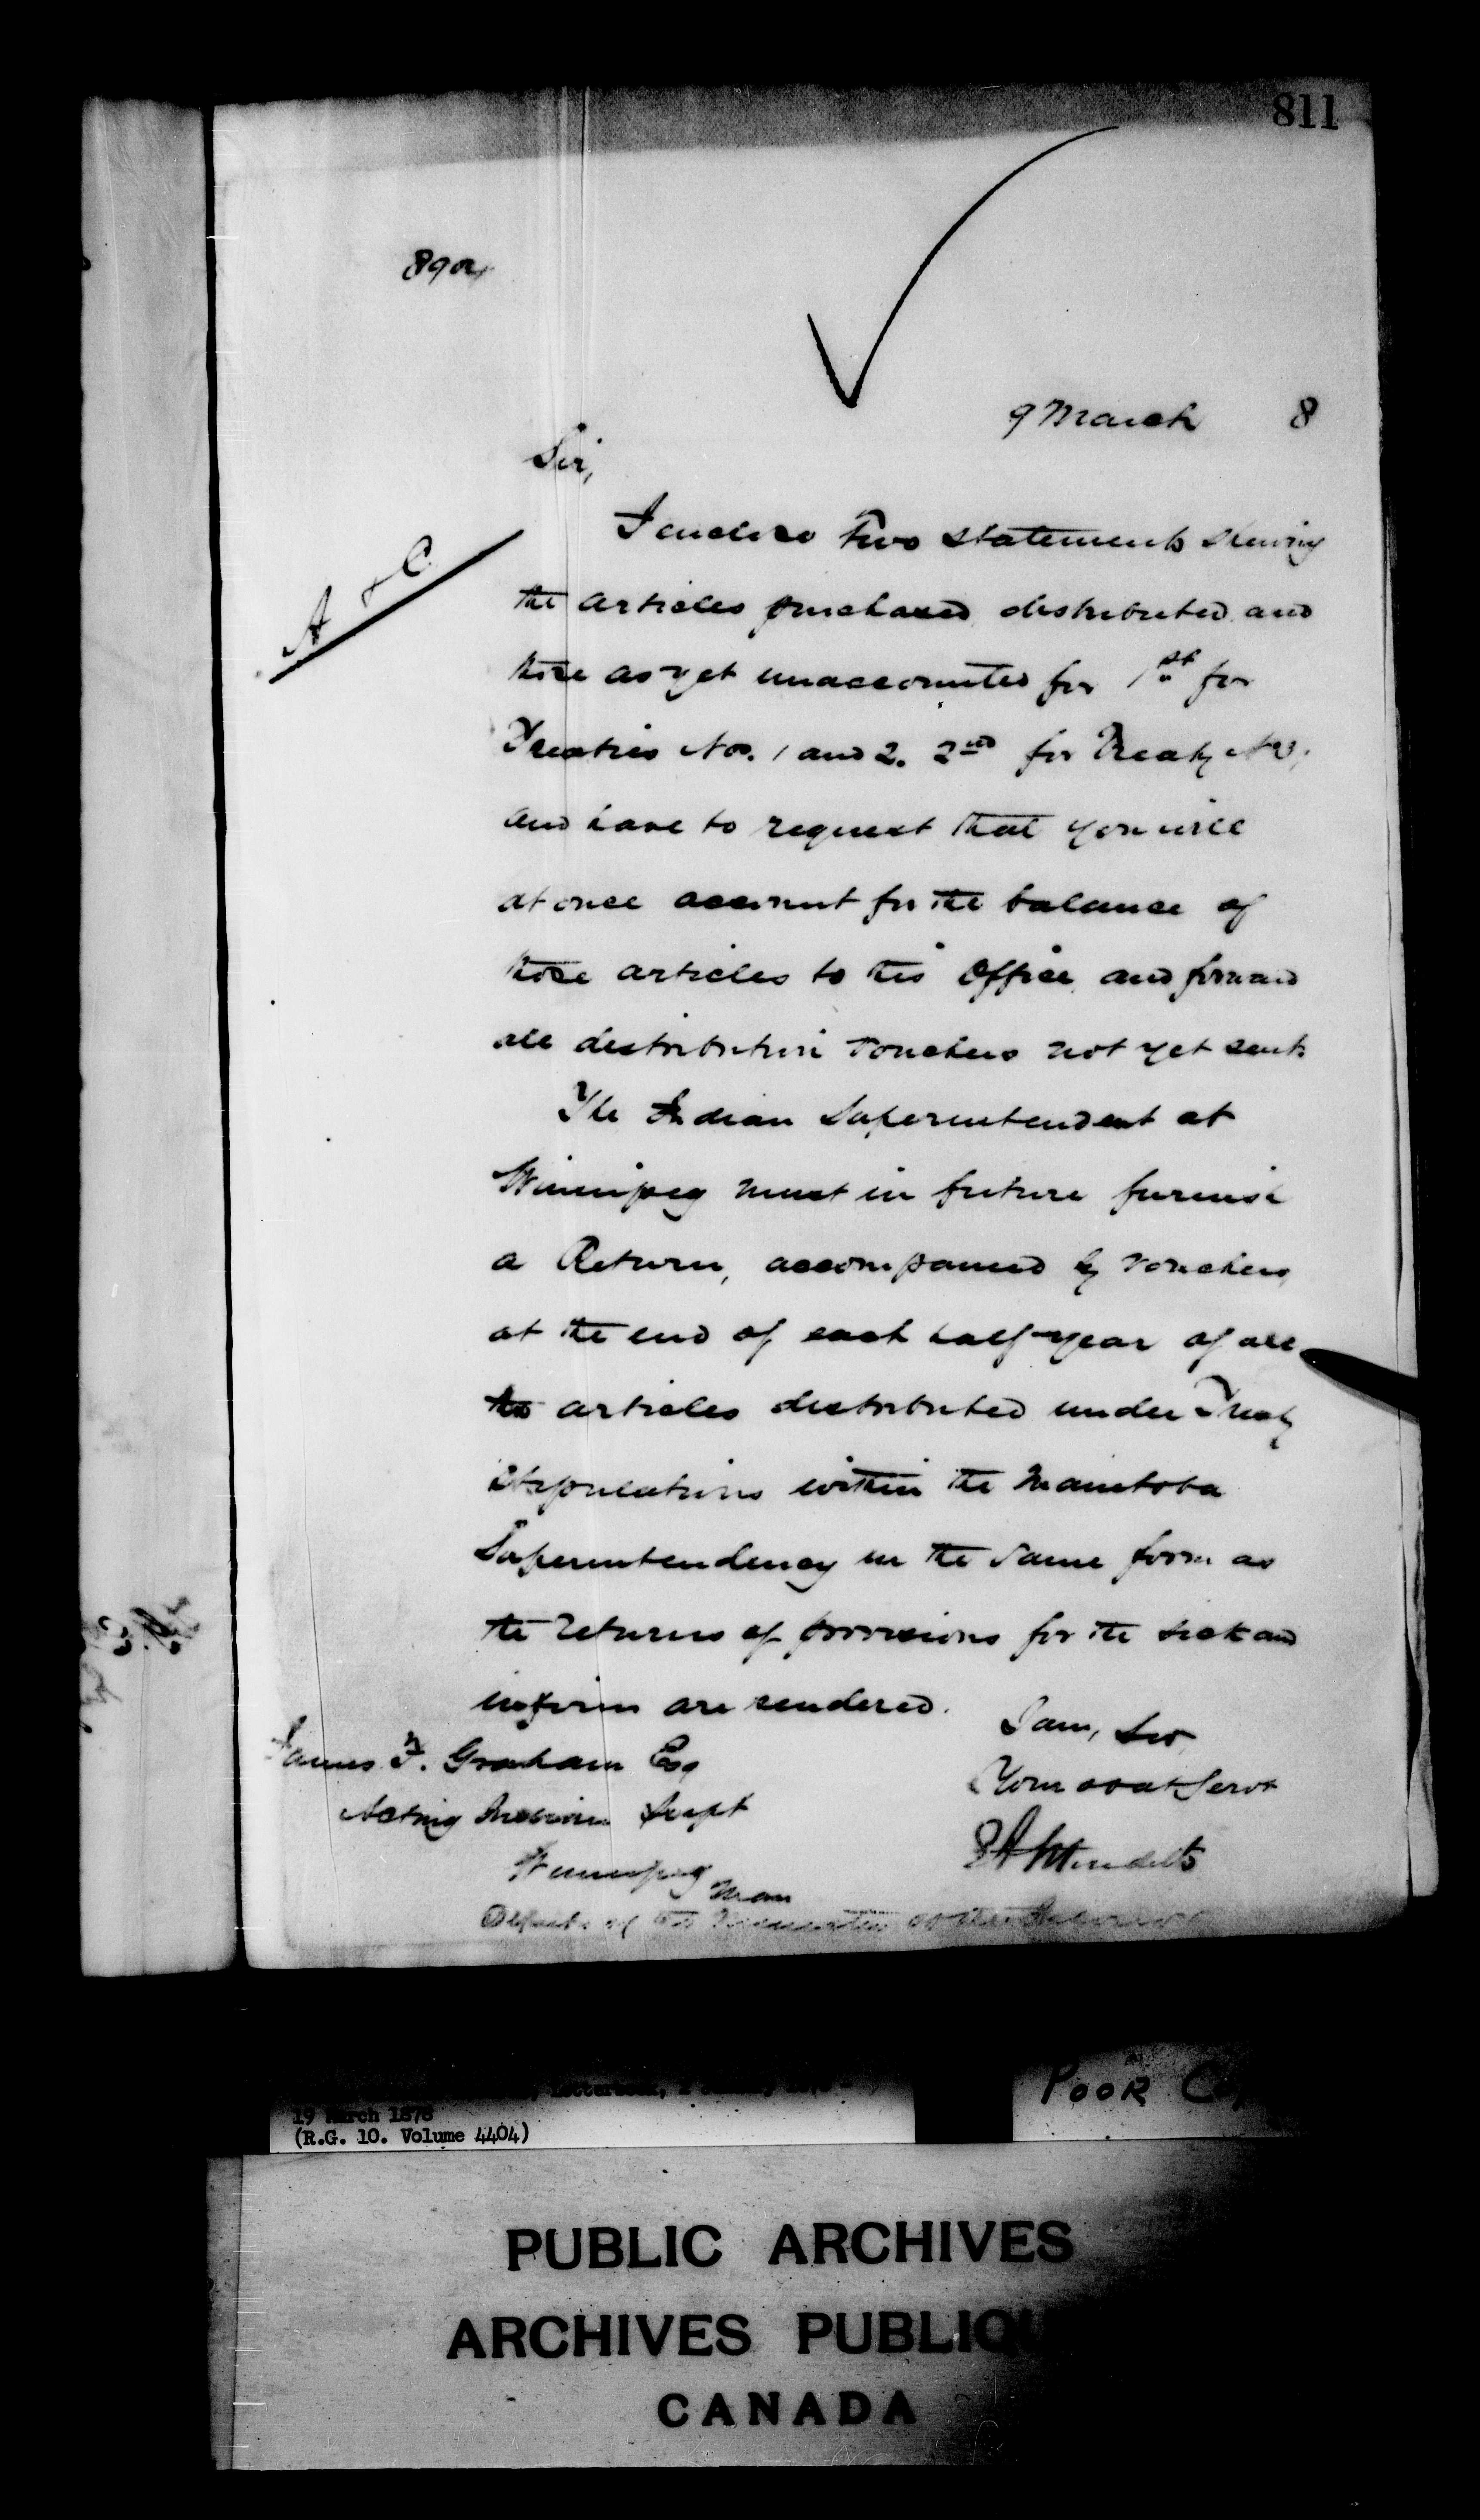 811
890
9 March 8
Sir,
A & C
I enclose two statements shewing
the articles purchased distributed and
those as yet unaccounted for 1st for
Treaties Nos. 1 and 2. 2nd for Treaty No
and have to request that you will
at once account for the balance of
those articles to this Office and forward
all distribution vouchers not yet sent.
The Indian Superintendent at
Winnipeg must in future furnish
a Return, accompanied by vouchers,
at the end of each half-year of all
the articles distributed under Treaty
stipulations within the Manitoba
Superintendency in the same form as
the returns of provisions for the sick and
infirm are rendered.
I am, Sir
Your obdt Servt
James F. Graham Esq
Acting Indian Supt
Winnipeg
Man
Letterbook,
19 March 1878
(R.G. 10. Volume 4404)
POOR
PUBLIC ARCHIVES
ARCHIVES PUBLIQU
CANADA